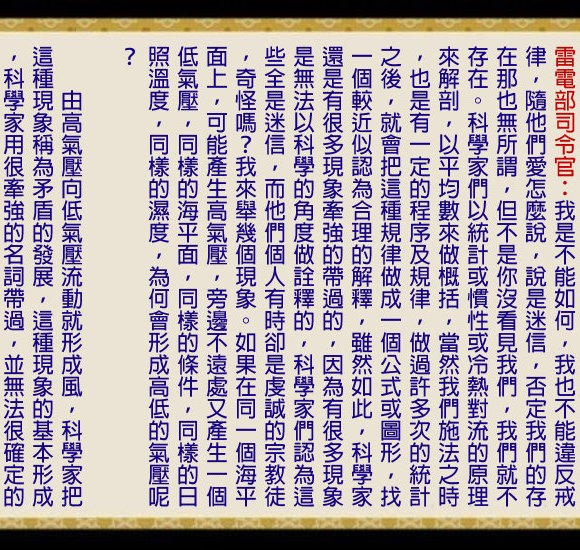 雷電部司令官：我是不能如何，我也不能違反戒
律，隨他們愛怎麼說，說是迷信，否定我們的存
在那也無所謂，但不是你沒看見我們，我們就不
存在。科學家們以統計或慣性或冷熱對流的原理
來解剖，以平均數來做概括，當然我們施法之時
，也是有一定的程序及規律，做過許多次的統計
之後，就會把這種規律做成一個公式或圖形，找
一個較近似認為合理的解釋，雖然如此，科學家
還是有很多現象牽強的帶過的，因為有很多現象
是無法以科學的角度做詮釋的，科學家們認為這
些全是迷信，而他們個人有時卻是虔誠的宗教徒
，奇怪嗎？我來舉幾個現象。如果在同一個海平
面上，可能產生高氣壓，旁邊不遠處又產生一個
低氣壓，同樣的海平面，同樣的條件，同樣的日
照溫度，同樣的濕度，為何會形成高低的氣壓呢
？
由高氣壓向低氣壓流動就形成風，科學家把
這種現象稱為矛盾的發展，這種現象的基本形成
，科學家用很牽強的名詞帶過，並無法很確定的